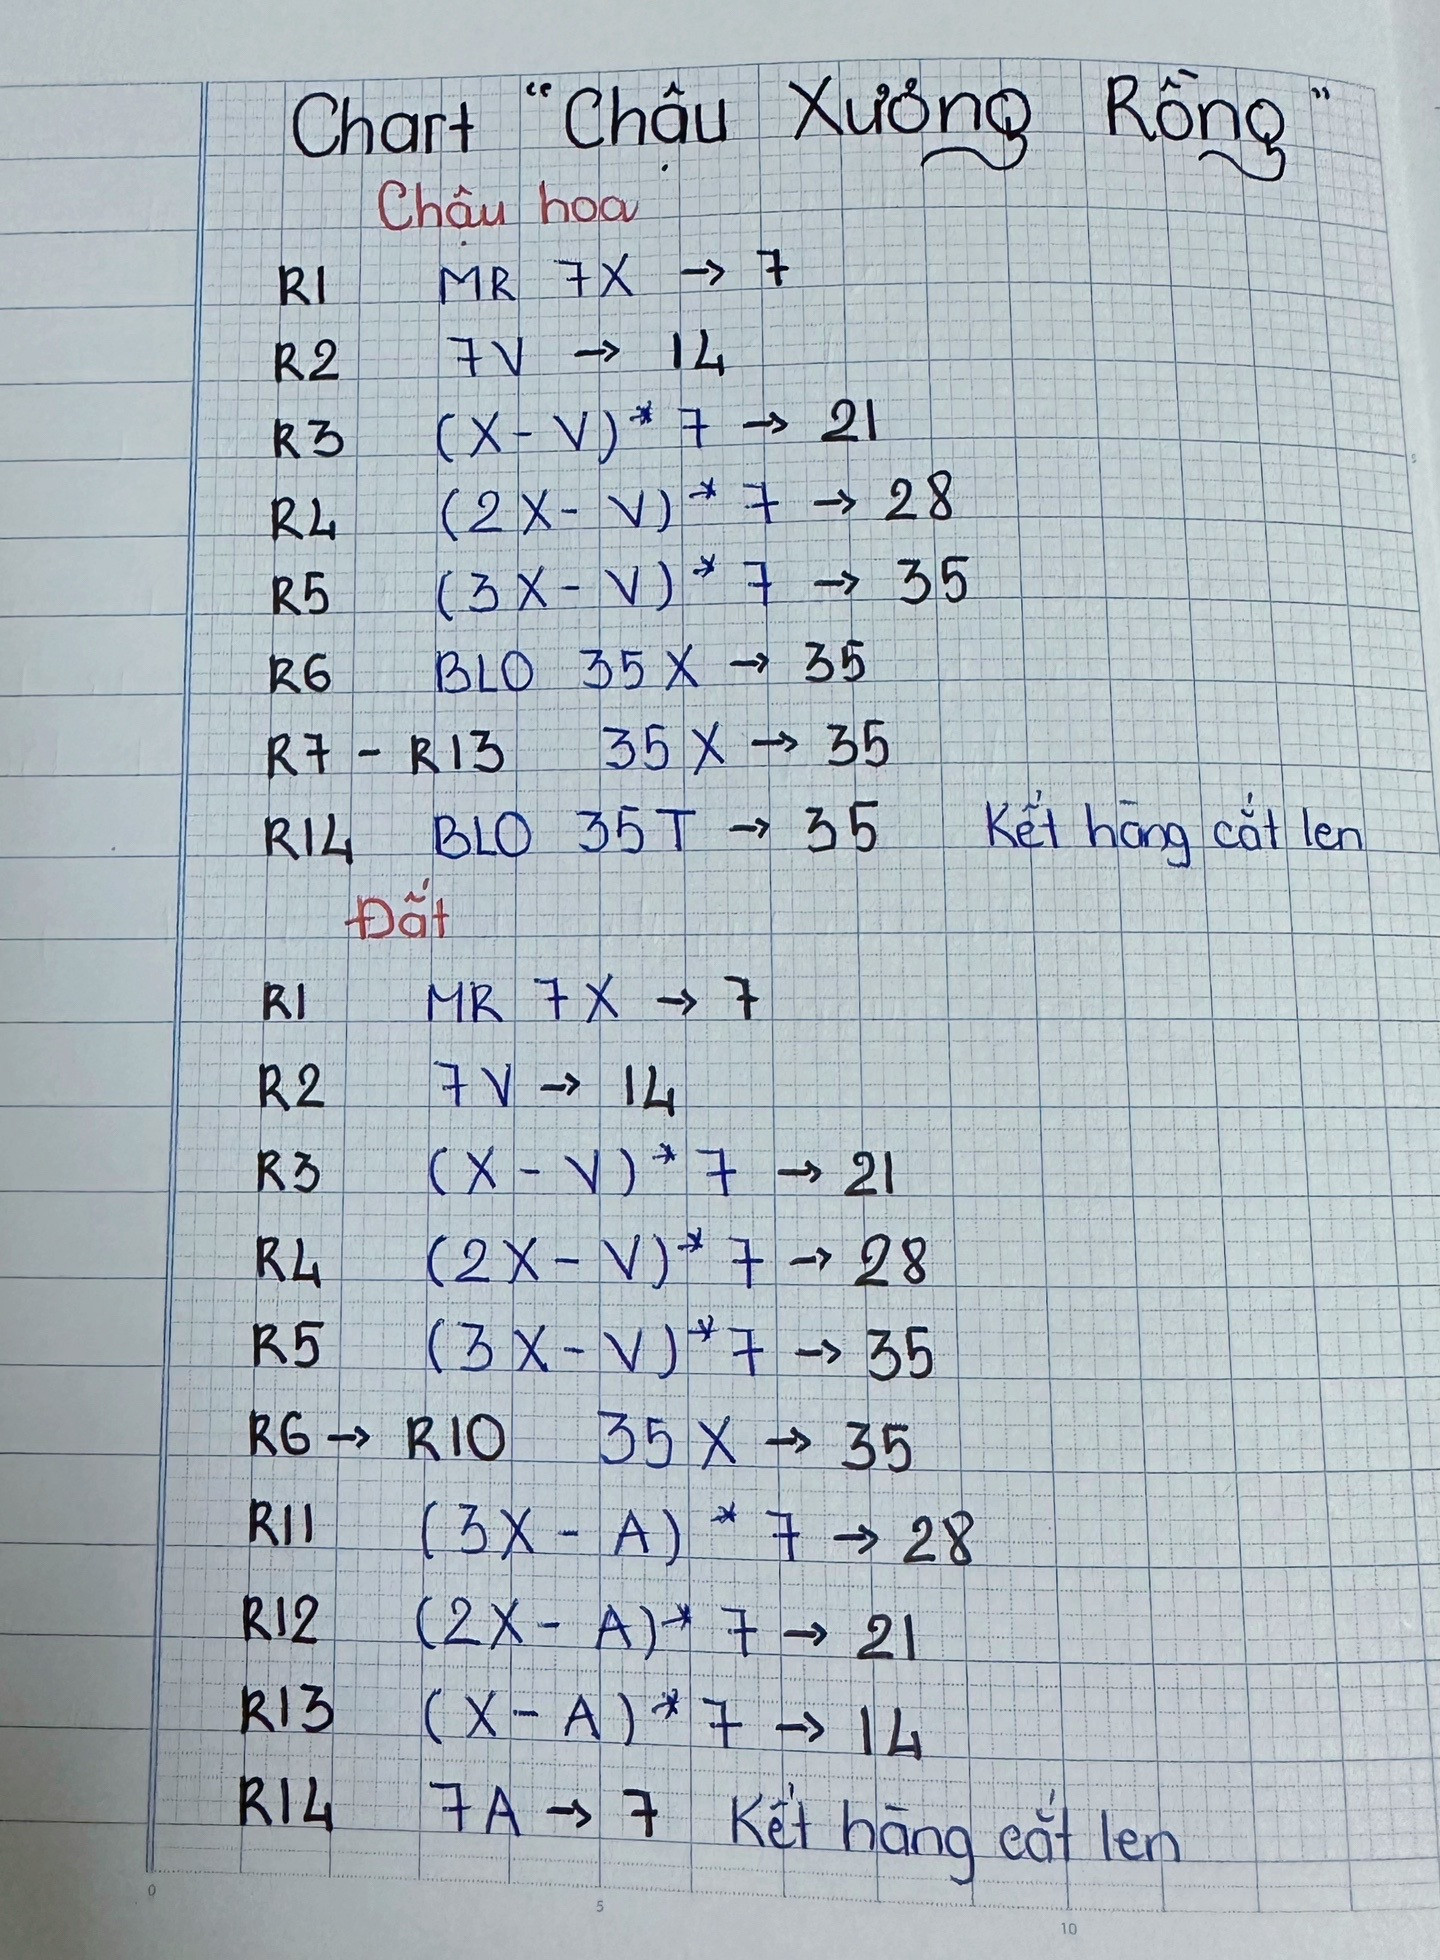 Chart "Chậu Xương Rồng"
Chậu hoa
R1 MR 7X → 7
R2 7V → 14
R3 (X - V) * 7 → 21
R4 (2X - V) * 7 → 28
R5 (3X - V) * 7 → 35
R6 BLO 35X → 35
R7 - R13 35X → 35
R14 BLO 35T → 35 Kết hàng cắt len
Đất
R1 MR 7X → 7
R2 7V → 14
R3 (X - V) * 7 → 21
R4 (2X - V) * 7 → 28
R5 (3X - V) * 7 → 35
R6 → R10 35X → 35
R11 (3X - A) * 7 → 28
R12 (2X - A) * 7 → 21
R13 (X - A) * 7 → 14
R14 7A → 7 Kết hàng cắt len
0 5 10